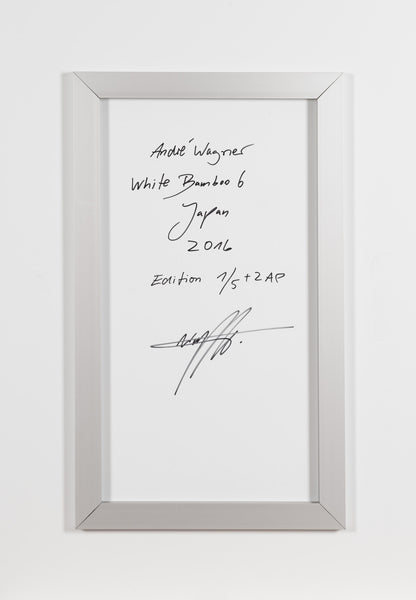 André Wagner
White Bamboo 6
Japan
2016
Edition 1/5 + 2 AP